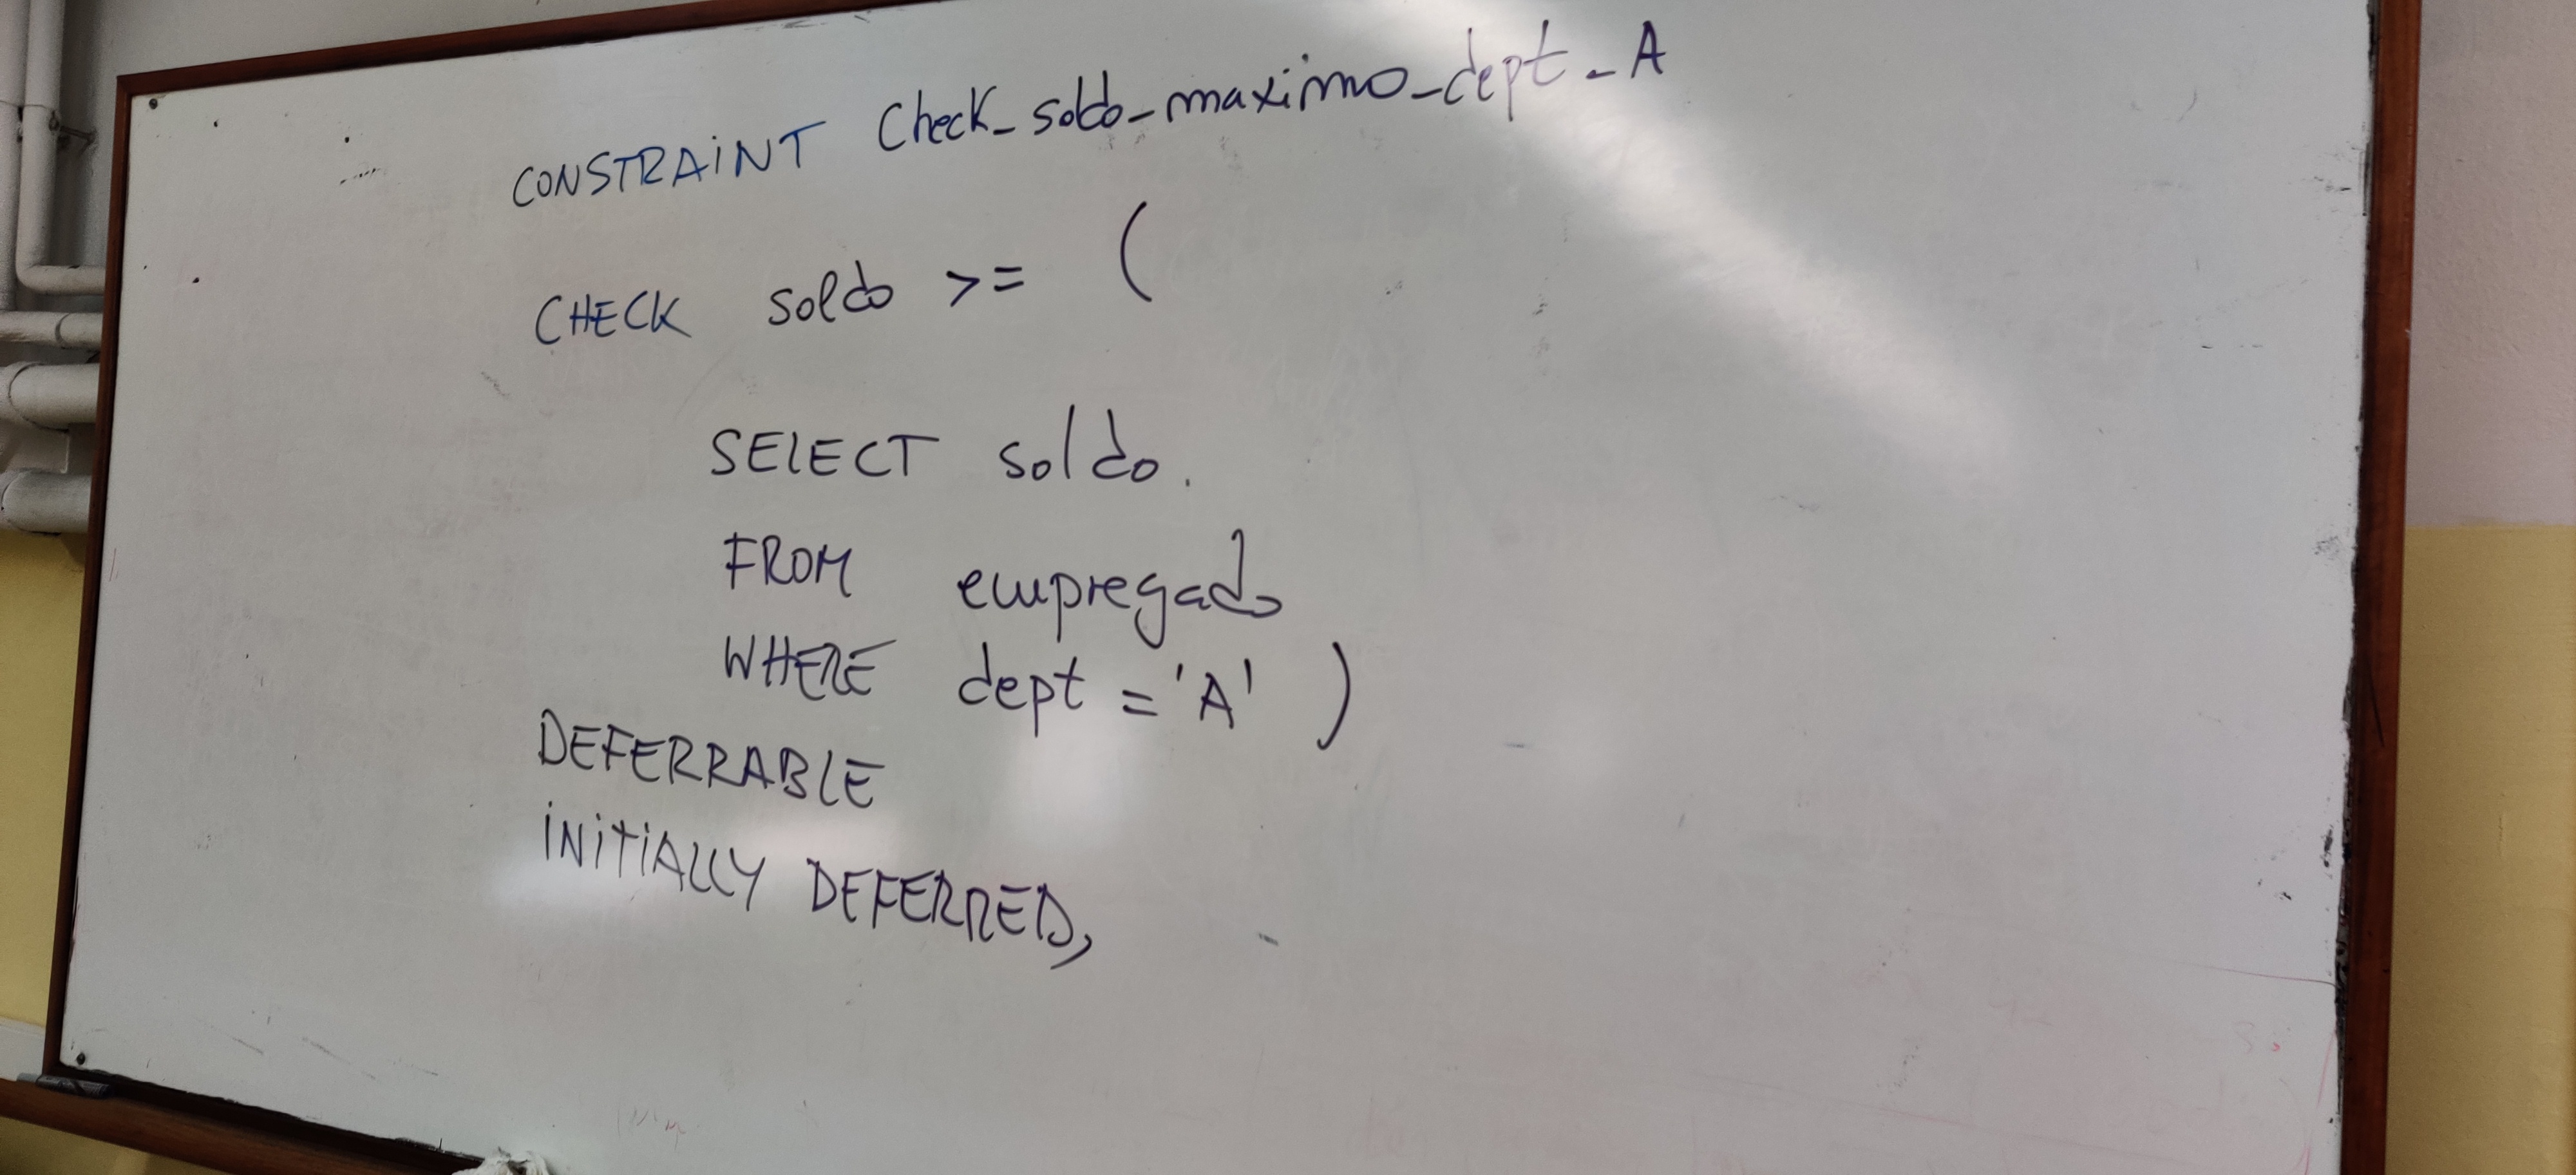 CONSTRAINT check_soldo_maximo_dept_A
CHECK soldo >= (
SELECT soldo.
FROM empregado
WHERE dept = 'A' )
DEFERRABLE
INITIALLY DEFERRED,